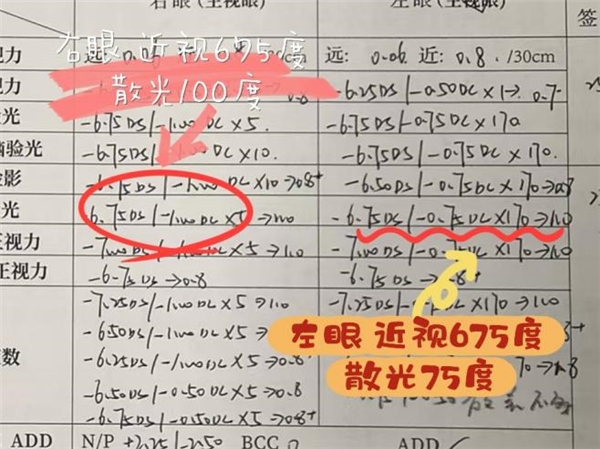 右眼(主视眼) 左眼(主视眼)
签
右眼 近视675度
散光100度
视力 远: 0.06 近: 0.8 /30cm
-6.25DS/-0.50DC×1
验光 -6.75DS/-1.00DC×5. -6.75DS/-0.75DC×170
脑验光 -6.75DS/-1.00DC×10. -6.75DS/-0.75DC×170.
影 -6.75DS/-1.00DC×10→0.8+ -6.50DS/-0.75DC×170→0.8
光 -6.75DS/-1.00DC×5→1.0 -6.75DS/-0.75DC×170→1.0
正视力 -7.00DS/-1.00DC×5→1.0 -7.00DS/-0.75DC×170→1.0
正视力 -6.75DS→0.8 -6.75DS→0.8+
-7.25DS/-1.00DC×5→1.0 -7.25DS/ ×170→1.0
-6.50DS/-1.00DC×5→0.8+
-6.25DS/-1.00DC×5→0.8.
-6.50DS/-0.50DC×5→0.8
-6.75DS/-0.50DC×5→0.8+
数
左眼 近视675度
散光75度
ADD N/P +2.25/-2.50 BCC ADD